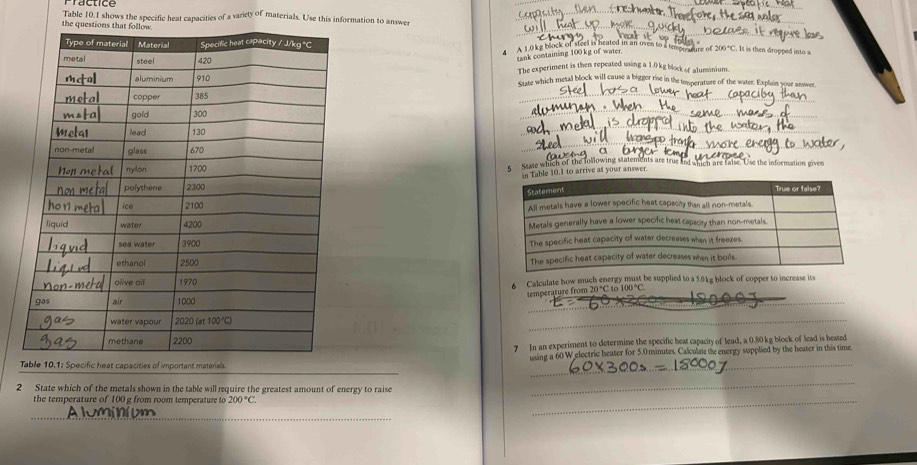 Practice
Table 10.1 shows the specific heat capacities of a variety of materials. Use this information to answer
the questions that follow.
Type of material Material Specific heat capacity / J/kg °C
metal steel 420
metal aluminium 910
metal copper 385
metal gold 300
metal lead 130
non-metal glass 670
non metal nylon 1700
non metal polythene 2300
non metal ice 2100
liquid water 4200
liquid sea water 3900
liquid ethanol 2500
non-metal olive oil 1970
gas air 1000
gas water vapour 2020 (at 100°C)
gas methane 2200
Table 10.1: Specific heat capacities of important materials.
2 State which of the metals shown in the table will require the greatest amount of energy to raise
the temperature of 100 g from room temperature to 200 °C.
Aluminium
lower specific heat
capacity then freshwater. Therefore, the sea water
will heat up more quickly because it require less
energy to heat it up
4 A 1.0 kg block of steel is heated in an oven to a temperature of 200 °C. It is then dropped into a
tank containing 100 kg of water.
The experiment is then repeated using a 1.0 kg block of aluminium.
State which metal block will cause a bigger rise in the temperature of the water. Explain your answer.
Steel has a lower heat capacity than
aluminum. When the same mass of
each metal is dropped into the water, the
steel will transfer more energy to water,
causing a larger temp increase.
5 State which of the following statements are true and which are false. Use the information given
in Table 10.1 to arrive at your answer.
Statement True or false?
All metals have a lower specific heat capacity than all non-metals.
Metals generally have a lower specific heat capacity than non-metals.
The specific heat capacity of water decreases when it freezes.
The specific heat capacity of water decreases when it boils.
6 Calculate how much energy must be supplied to a 5.0 kg block of copper to increase its
temperature from 20 °C to 100 °C.
E = 60 x 300 = 18000J
7 In an experiment to determine the specific heat capacity of lead, a 0.80 kg block of lead is heated
using a 60 W electric heater for 5.0 minutes. Calculate the energy supplied by the heater in this time.
60 x 300s = 18000J